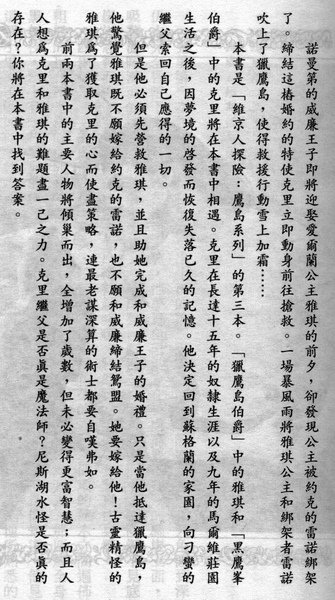 諾曼第的威廉王子即將迎娶愛爾蘭公主雅琪的前夕，卻發現公主被約克的雷諾綁架
了。締結這樁婚約的特使克里立即動身前往搶救。一場暴風雨將雅琪公主和綁架者雷諾
吹上了獵鷹島，使得救援行動雪上加霜……
本書是「維京人探險：鷹島系列」的第三本。「獵鷹島伯爵」中的雅琪和「黑鷹峯
伯爵」中的克里將在本書中相遇。克里在長達十五年的奴隸生涯以及九年的馬爾維莊園
生活之後，因夢境的啓發而恢復失落已久的記憶。他決定回到蘇格蘭的家園，向刁蠻的
繼父索回自己應得的一切。
但是他必須先營救雅琪，並且助她完成和威廉王子的婚禮。只是當他抵達獵鷹島，
他驚覺雅琪既不願嫁給約克的雷諾，也不願和威廉締結鴛盟。她要嫁給他！古靈精怪的
雅琪爲了獲取克里的心而使盡策略，連最老謀深算的術士都要自嘆弗如。
前兩本書中的主要人物將傾巢而出，全增加了歲數，但未必變得更富智慧；而且人
人想爲克里和雅琪的難題盡一己之力。克里繼父是否眞是魔法師？尼斯湖水怪是否眞的
存在？你將在本書中找到答案。